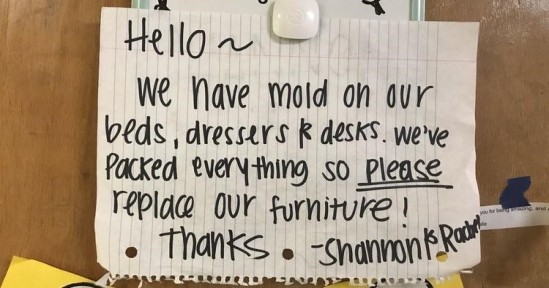 Hello ~
We have mold on our
beds, dressers & desks. We've
packed everything so please
replace our furniture!
Thanks -Shannon & Rachel
you for being amazing, and